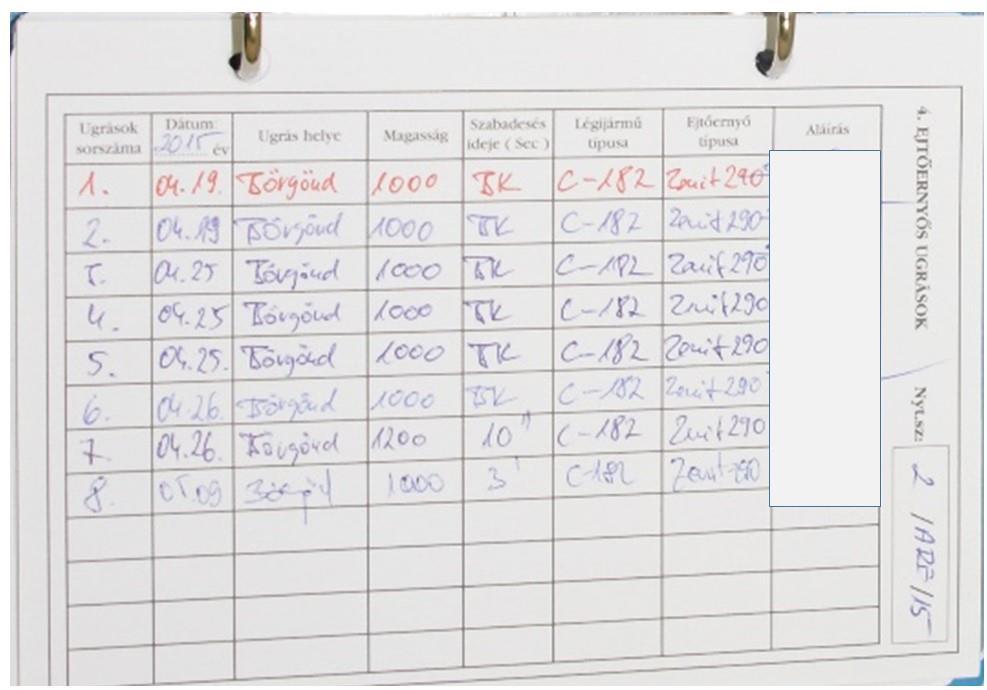 Ugrások sorszáma Dátum: 2015 év Ugrás helye Magasság Szabadesés ideje ( Sec ) Légijármű típusa Ejtőernyő típusa Aláírás
1. 04.19. Börgönd 1000 BK C-182 Zenit 290
2. 04.19 Börgönd 1000 BK C-182 Zenit 290
04.25 Börgönd 1000 BK C-182 Zenit 290
4. 04.25 Börgönd 1000 BK C-182 Zenit 290
5. 04.25. Börgönd 1000 BK C-182 Zenit 290
6. 04.26. Börgönd 1000 BK C-182 Zenit 290
7. 04.26. Börgönd 1200 10" C-182 Zenit 290
8. 05.09 1000 3 C-182 Zenit 290
4. EJTŐERNYŐS UGRÁSOK
Nyt.sz:
2 /ADE/15